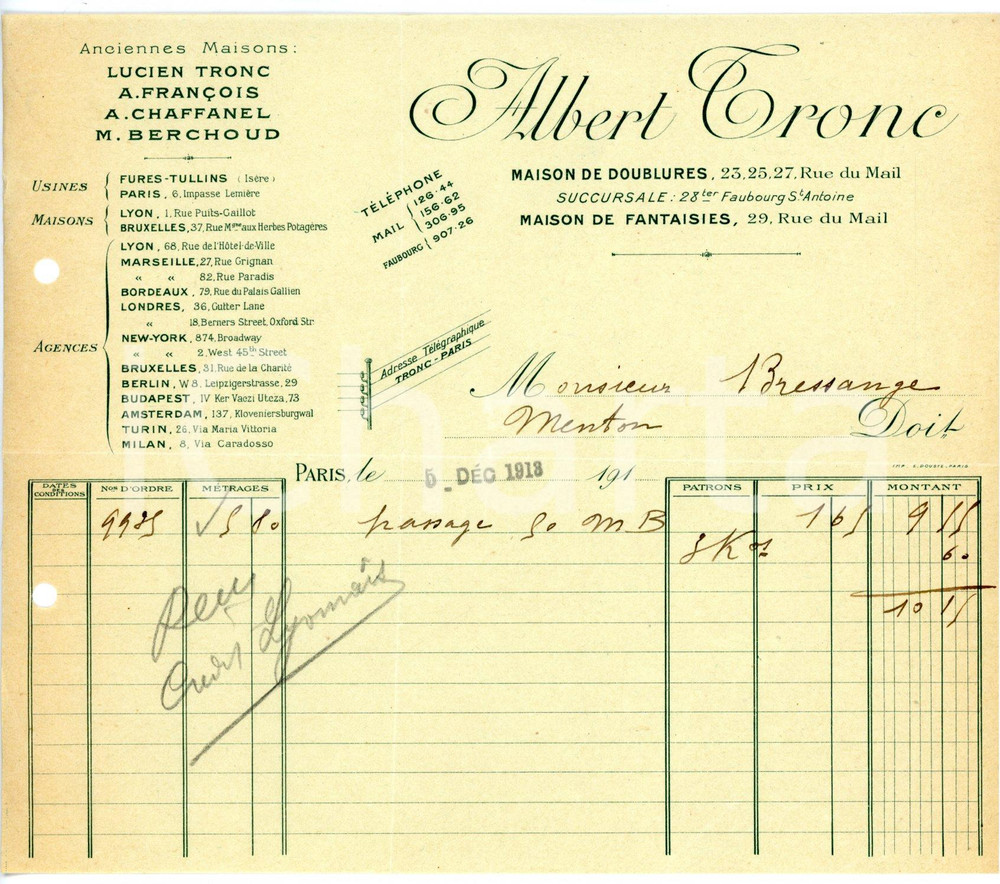 Anciennes Maisons:
LUCIEN TRONC
A. FRANÇOIS
A. CHAFFANEL
M. BERCHOUD
USINES
FURES-TULLINS (Isère)
PARIS, 6, Impasse Lemière
MAISONS
LYON, 1, Rue Puits-Gaillot
BRUXELLES, 37, Rue Mgne aux Herbes Potagères
AGENCES
LYON, 68, Rue de l'Hôtel-de-Ville
MARSEILLE, 27, Rue Grignan
« « 82, Rue Paradis
BORDEAUX, 79, Rue du Palais Gallien
LONDRES, 36, Gutter Lane
« 18, Berners Street, Oxford Str.
NEW-YORK, 874, Broadway
« « 2, West 45th Street
BRUXELLES, 31, Rue de la Charité
BERLIN, W 8. Leipzigerstrasse, 29
BUDAPEST, IV Ker Vaezi Utcza, 73
AMSTERDAM, 137, Kloveniersburgwal
TURIN, 26, Via Maria Vittoria
MILAN, 8, Via Caradosso
Albert Tronc
MAISON DE DOUBLURES, 23, 25, 27, Rue du Mail
SUCCURSALE: 28ter Faubourg St Antoine
MAISON DE FANTAISIES, 29, Rue du Mail
TÉLÉPHONE
MAIL 126-44
156-62
306-95
FAUBOURG 907-26
Adresse Télégraphique
TRONC-PARIS
Monsieur Bressange
Menton Doit
IMP. E. DOUBIS-PARIS
PARIS, le 5 - DÉC 1913 191
DATES DES CONDITIONS Nos D'ORDRE MÉTRAGES PATRONS PRIX MONTANT
9935 5 80 passage 50 MB 165 9 55
60
10 15
Lyonnais